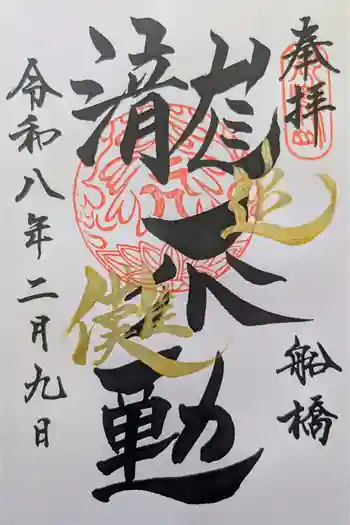 奉拝
船橋
瀧不動
追儺
令和八年二月九日